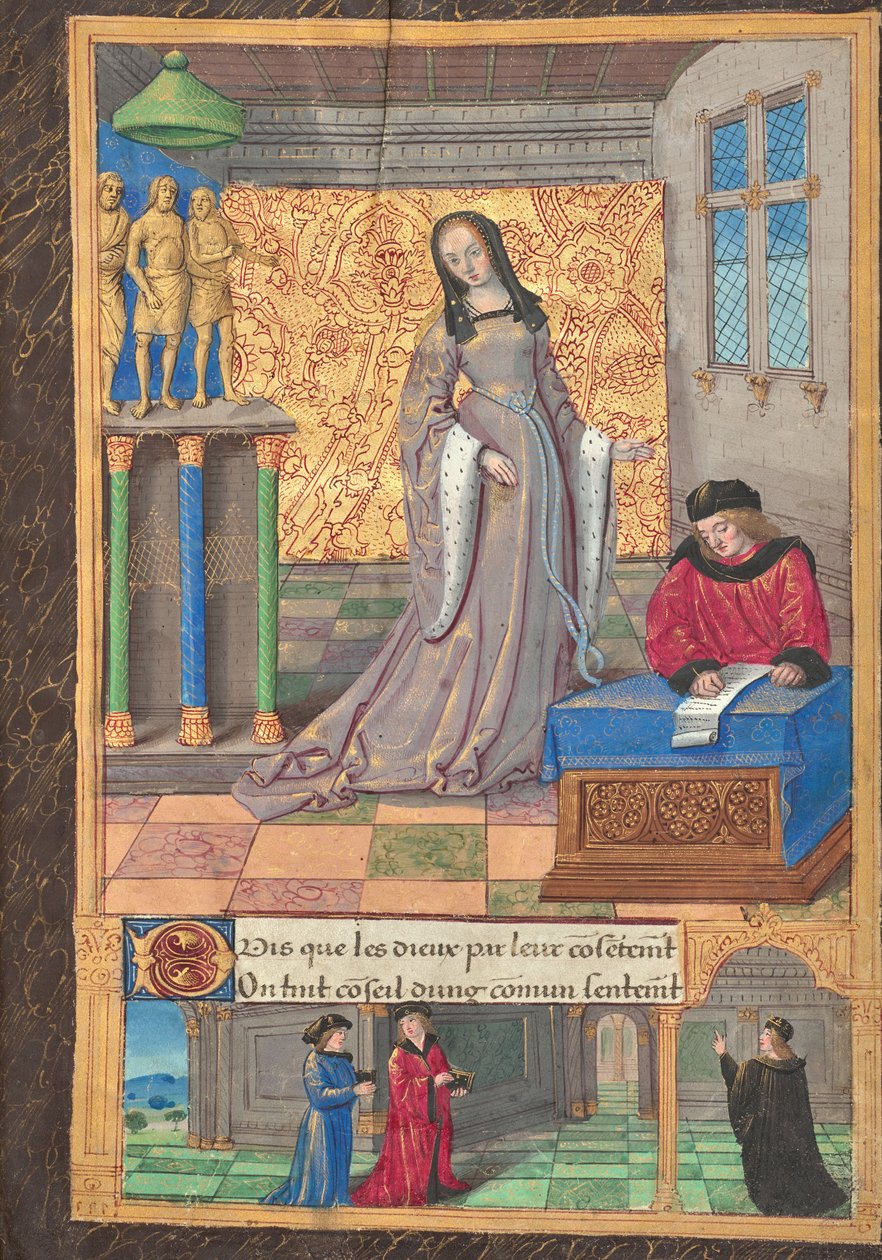 Puis que les dieux par leur cōsētem̄t
Ont tint cōseil dung cōmun sentem̄t